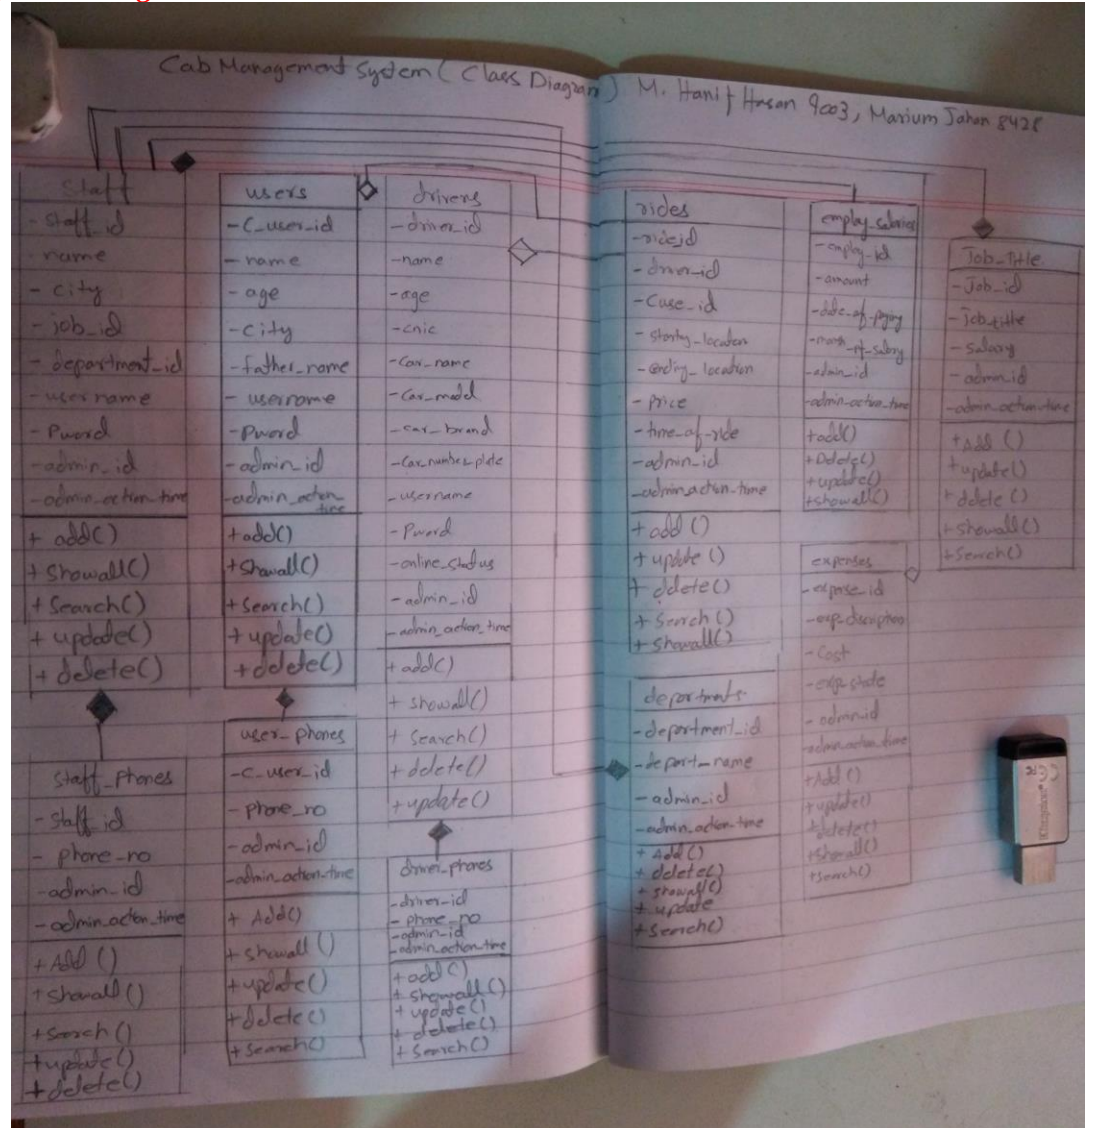 Cab Management System ( Class Diagram ) M. Hanif Hasan 9003, Marium Jahan 8428
Staff
- staff_id
- name
- city
- job_id
- department_id
- username
- Pword
- admin_id
- admin_action_time
+ add()
+ showall()
+ Search()
+ update()
+ delete()
staff_phones
- staff_id
- phone_no
- admin_id
- admin_action_time
+ Add ()
+ showall ()
+ Search ()
+ update()
+ delete()
users
- C_user_id
- name
- age
- City
- father_name
- username
- Pword
- admin_id
- admin_action_
time
+ add()
+ showall()
+ Search()
+ update()
+ delete()
user_phones
- c_user_id
- phone_no
- admin_id
- admin_action_time
+ Add()
+ showall ()
+ update()
+ delete()
+ Search()
drivers
- driver_id
- name
- age
- cnic
- Car_name
- Car_model
- car_brand
- Car_number_plate
- username
- Pword
- online_status
- admin_id
- admin_action_time
+ add()
+ showall()
+ Search()
+ delete()
+ update()
driver_phones
- driver_id
- phone_no
- admin_id
- admin_action_time
+ add()
+ showall()
+ update()
+ delete()
+ Search()
rides
- ride_id
- driver_id
- Cuse_id
- starting_location
- ending_location
- Price
- time_of_ride
- admin_id
- admin_action_time
+ add ()
+ update ()
+ delete()
+ Search()
+ Showall()
departments
- department_id
- depart_name
- admin_id
- admin_action_time
+ Add()
+ delete()
+ showall()
+ update
+ Search()
employ_salaries
- employ_id
- amount
- date_of_paying
- month_of_salary
- admin_id
- admin_action_time
+ add()
+ Delete()
+ update()
+ Showall()
expenses
- expense_id
- exp_discription
- Cost
- admin_id
- admin_action_time
+ Add()
+ update()
+ delete()
+ Showall()
+ Search()
Job_title
- Job_id
- job_title
- Salary
- admin_id
- admin_action_time
+ Add ()
+ update()
+ delete()
+ Showall()
+ Search()
Kingston